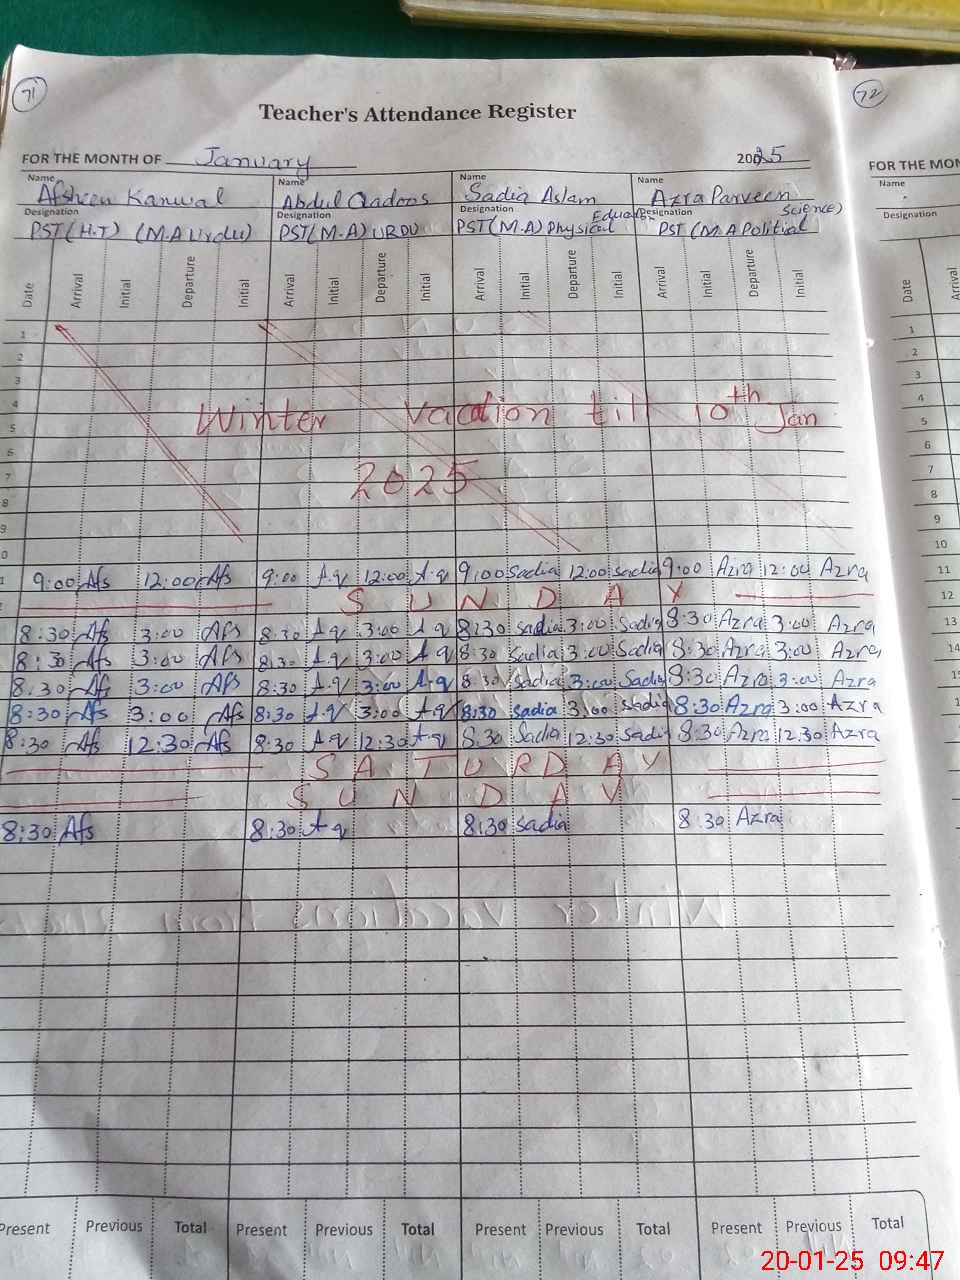 71
72
Teacher's Attendance Register
FOR THE MONTH OF January 2025
FOR THE MON
Name Afsheen Kanwal Name Abdul Qadoos Name Sadia Aslam Name Azra Parveen
Name
Designation PST (H.T) (M.A Urdu) Designation PST (M.A) URDU Designation PST (M.A) Physical Designation PST (M.A Political Science)
Designation
Date Arrival Initial Departure Initial Arrival Initial Departure Initial Arrival Initial Departure Initial Arrival Initial Departure Initial
Date Arrival
1 1
2 2
3 3
4 4
Winter Vacation till 10th Jan
5 5
6 6
7 7
2025
8 8
9 9
0 10
1 9:00 Afs 12:00 Afs 9:00 A.q 12:00 A.q 9:00 Sadia 12:00 Sadia 9:00 Azra 12:00 Azra 11
SUNDAY 12
8:30 Afs 3:00 Afs 8:30 A.q 3:00 A.q 8:30 Sadia 3:00 Sadia 8:30 Azra 3:00 Azra 13
8:30 Afs 3:00 Afs 8:30 A.q 3:00 A.q 8:30 Sadia 3:00 Sadia 8:30 Azra 3:00 Azra 14
8:30 Afs 3:00 Afs 8:30 A.q 3:00 A.q 8:30 Sadia 3:00 Sadia 8:30 Azra 3:00 Azra
8:30 Afs 3:00 Afs 8:30 A.q 3:00 A.q 8:30 Sadia 3:00 Sadia 8:30 Azra 3:00 Azra
8:30 Afs 12:30 Afs 8:30 A.q 12:30 A.q 8:30 Sadia 12:30 Sadia 8:30 Azra 12:30 Azra
SATURDAY
SUNDAY
8:30 Afs 8:30 A.q 8:30 Sadia 8:30 Azra
Present Previous Total Present Previous Total Present Previous Total Present Previous Total
20-01-25 09:47